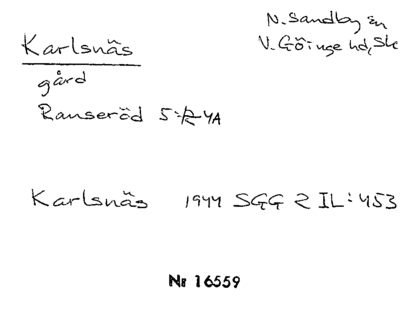 Karlsnäs
N. Sandby sn
V. Göinge hd, Sk
gård
Ranseröd 5:2 4A
Karlsnäs 1944 SGG 2 IL:453
Nr 16559